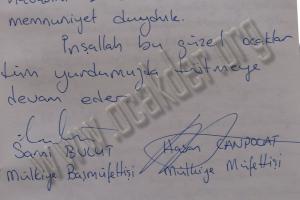 memnuniyet duyduk.
İnşallah bu güzel ocaklar
tüm yurdumuzda tütmeye
devam eder.
Sami BULUT Hasan CANPOLAT
Mülkiye Başmüfettişi Mülkiye Müfettişi
www.ocakder.org